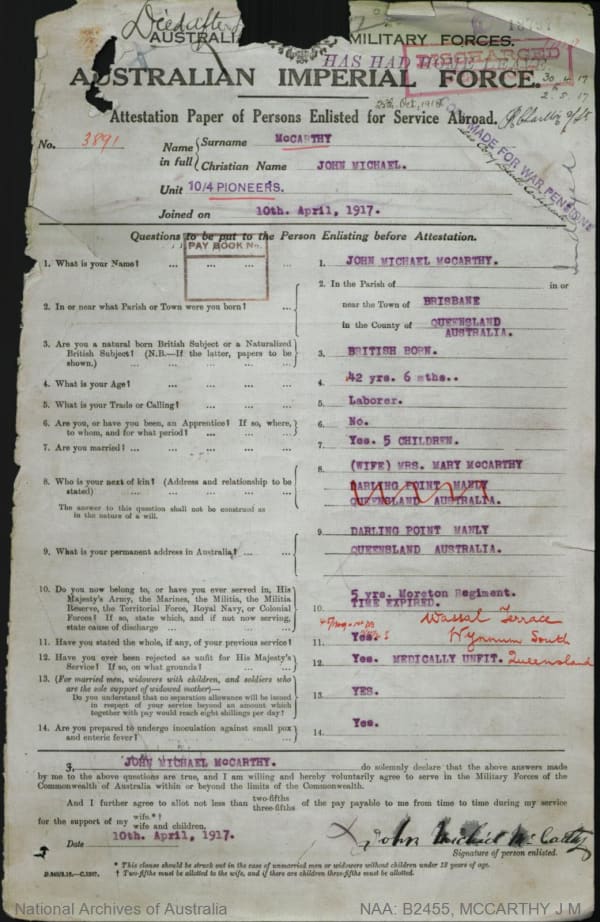 Died after
AUSTRALIAN MILITARY FORCES.
HAS HAD HOME LEAVE
DISCHARGED
AUSTRALIAN IMPERIAL FORCE.
30 4 17
2 5 17
Attestation Paper of Persons Enlisted for Service Abroad.
25th Oct. 1918
MADE FOR WAR PENSION
No. 3891
Name in full { Surname McCARTHY
Christian Name JOHN MICHAEL.
Unit 10/4 PIONEERS.
Joined on 10th. April, 1917.
Questions to be put to the Person Enlisting before Attestation.
PAY BOOK No.
1. What is your Name? ... ... ... ... 1. JOHN MICHAEL McCARTHY.
2. In or near what Parish or Town were you born? ... 2. In the Parish of in or
near the Town of BRISBANE
in the County of QUEENSLAND
AUSTRALIA.
3. Are you a natural born British Subject or a Naturalized
British Subject? (N.B.—If the latter, papers to be
shown.) ... ... ... ... 3. BRITISH BORN.
4. What is your Age? ... ... ... ... 4. 42 yrs. 6 mths..
5. What is your Trade or Calling? ... ... ... 5. Laborer.
6. Are you, or have you been, an Apprentice? If so, where,
to whom, and for what period? ... ... ... 6. No.
7. Are you married? ... ... ... ... 7. Yes. 5 CHILDREN.
8. Who is your next of kin? (Address and relationship to be
stated) ... ... ... ... 8. (WIFE) MRS. MARY McCARTHY
DARLING POINT MANLY
QUEENSLAND AUSTRALIA.
The answer to this question shall not be construed as
in the nature of a will.
9. What is your permanent address in Australia? ... ... 9. DARLING POINT MANLY
QUEENSLAND AUSTRALIA.
10. Do you now belong to, or have you ever served in, His
Majesty's Army, the Marines, the Militia, the Militia
Reserve, the Territorial Force, Royal Navy, or Colonial
Forces? If so, state which, and if not now serving,
state cause of discharge ... ... ... 10. 5 yrs. Moreton Regiment.
TIME EXPIRED.
Wassal Terrace
Wynnum South
Queensland
11. Have you stated the whole, if any, of your previous service? 11. Yes.
12. Have you ever been rejected as unfit for His Majesty's
Service? If so, on what grounds? ... ... 12. Yes. MEDICALLY UNFIT.
13. (For married men, widowers with children, and soldiers who
are the sole support of widowed mother)—
Do you understand that no separation allowance will be issued
in respect of your service beyond an amount which
together with pay would reach eight shillings per day? 13. YES.
14. Are you prepared to undergo inoculation against small pox
and enteric fever? ... ... ... ... 14. Yes.
I, JOHN MICHAEL McCARTHY. do solemnly declare that the above answers made
by me to the above questions are true, and I am willing and hereby voluntarily agree to serve in the Military Forces of the
Commonwealth of Australia within or beyond the limits of the Commonwealth.
And I further agree to allot not less than two-fifths three-fifths of the pay payable to me from time to time during my service
for the support of my wife.*† wife and children.
Date 10th. April, 1917. X John Michael McCarthy
Signature of person enlisted.
* This clause should be struck out in the case of unmarried men or widowers without children under 18 years of age.
† Two-fifths must be allotted to the wife, and if there are children three-fifths must be allotted.
National Archives of Australia NAA: B2455, MCCARTHY J M